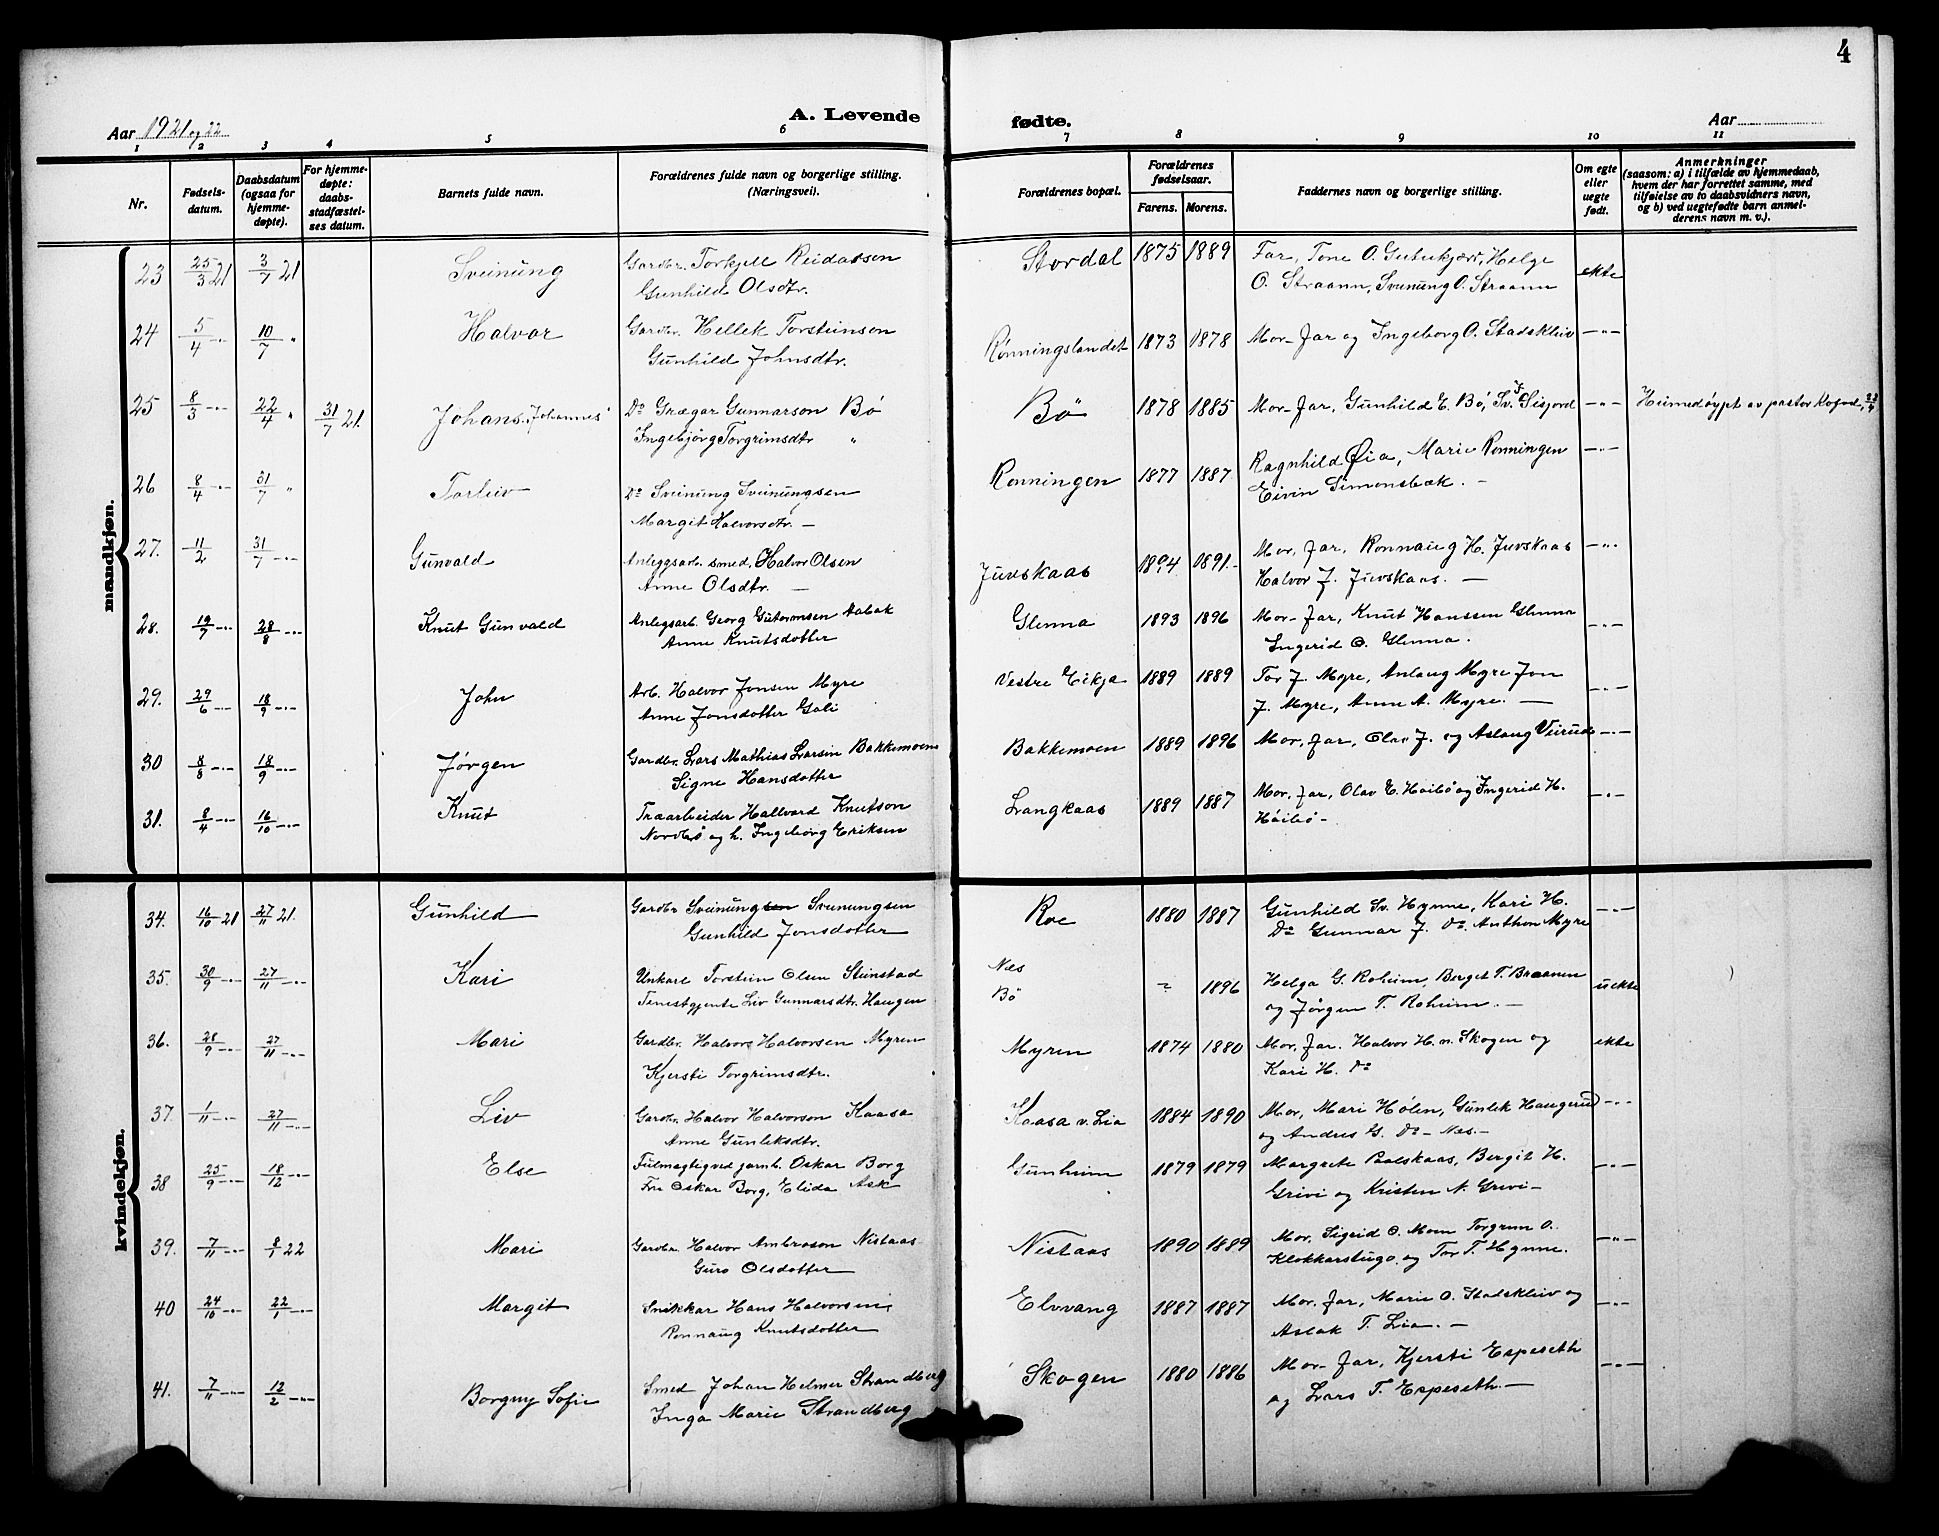 4
Aar 1921 og 22
A. Levende
fødte.
Aar
1 2 3 4 5 6 7 8 9 10 11
Nr.
Fødsels-
datum.
Daabsdatum
(ogsaa for
hjemme-
døpte).
For hjemme-
døpte:
daabs-
stadfæstel-
ses datum.
Barnets fulde navn.
Forældrenes fulde navn og borgerlige stilling.
(Næringsvei).
Forældrenes bopæl.
Forældrenes
fødselsaar.
Farens. Morens.
Faddernes navn og borgerlige stilling.
Om egte
eller
uegte
født.
Anmerkninger
(saasom: a) i tilfælde av hjemmedaab,
hvem der har forrettet samme, med
tilføielse av to daabsvidners navn,
og b) ved uegtefødte barn anmel-
derens navn m. v.).
mandkjøn.
23 25/3 21 3/7 21 Sveinung Gardbr. Torkjell Reidassen Stordal 1875 1889 Far, Tone O. Helge ekte
Gunhild Olsdtr. O. Straann, Sveinung O. Straann
24 5/4 -"- 10/7 " Halvor Gardbr. Hellek Torsteinsen Rønningslandet 1873 1878 Mor-Far og Ingeborg O. Stadskleiv -"-
Gunhild Johnsdtr.
25 8/3 -"- 22/4 " 31/7 21 Johans. "Johannes" Do Grægar Gunnarson Bö Bö 1878 1885 Mor-Far, Gunhild E. Bö, Sv. Sisjord -"- Heimedöypt av pastor 22/4
Ingebjörg Torgrimsdtr "
26 8/4 -"- 31/7 " Torleiv Do Sveinung Sveinungsen Rønningen 1877 1887 Ragnhild Øia, Marie Rønningen -"-
Margit Halvorsdtr. - Eivin Simonsbæk. -
27. 11/2 31/7 -"- Gunvald Anleggsarb. smed. Halvor Olsen Juvskaas 1894 1891.- Mor, Far, Rønnaug H. Juvskaas -"-
Anne Olsdtr. - Halvor J. Juvskaas. -
28. 19/7 -"- 28/8 -"- Knut Gunvald Anlegsarb. Georg Gutormsen Aabak Glenna 1893 1896 Mor-Far, Knut Hanssen Glenna -"-
Anne Knutsdotter Ingerid O. Glenna.
29. 29/6 -"- 18/9 -"- John Arb. Halvor Jonsen Myre Vestre Eikja 1889 1889 Tor J. Myre, Anlaug Myre Jon -"-
Anne Jonsdotter Goli J. Myre, Anne A. Myre. -
30 8/8 -"- 18/9 -"- Jørgen Gardbr. Lars Mathias Larsen Bakkemoen Bakkemoen 1889 1896 Mor, Far, Olav J. og Aslaug Veirud -"-
Signe Hansdotter
31. 8/4 -"- 16/10 -"- Knut Træarbeider Hallvard Knutson Langkaas 1889 1887 Mor, Far, Olav E. Höibö og Ingerid H. -"-
Nordbö og h. Ingeborg Eriksen Höibö-
kvindekjøn.
34. 16/10 21 27/11 21. Gunhild Gardbr Sveinung Sveinungsen Roe 1880 1887 Gunhild Sv. Hynne, Kari H. -"-
Gunhild Jonsdotter Do Gunnar J. Do Anthon Myre
35. 30/9 -"- 27/11 -"- Kari Unkarl Torstein Olsen Steinstad Næs ? 1896 Helga G. Roheim, Berget T. Braanen uekte
Tenestgjente Liv Gunnarsdtr. Haugen Bö og Jørgen T. Roheim. -
36. 28/9 -"- 27/11 -"- Mari Gardbr. Halvor Halvorsen Myren Myren 1874 1880 Mor, Far. Halvor H. n. Skogen og ekte
Kjersti Torgrimsdtr. Kari H. Do
37. 1/11 -"- 27/11 -"- Liv Gardbr. Halvor Halvorson Kaasa Kaasa v. Lia 1884 1890 Mor, Mari Hølen, Gunlek Haugerud -"-
Anne Gunleksdtr. og Andres G. Do- Næs.-
38 25/9 -"- 18/12 -"- Else Fulmagtig ved jarnb. Oskar Borg Gunheim 1879 1879 Margrete Paalskaas, Bergit H. -"-
Fru Oskar Borg, Elida Ask Grivi og Kristen N. Grivi-
39. 7/11 -"- 8/1 22 Mari Gardbr Halvor Ambroson Nistaas Nistaas 1890 1889 Mor, Sigrid O. Moen Torgrim O. -"-
Guro Olsdotter Klokkarstugo og Tor T. Hynne.
40 24/10 -"- 22/1 -"- Margit Snikkar Hans Halvorsen Elvvang 1887 1887 Mor, Far, Marie O. Stadskleiv og -"-
Rønnaug Knutsdotter Aslak T. Lia. -
41. 7/11 -"- 12/2 -"- Borgny Sofie Smed Johan Helmer Strandberg Skogen 1880 1886 Mor-Far, Kjersti Espeseth -"-
Inga Marie Strandberg og Lars T. Espeseth.-